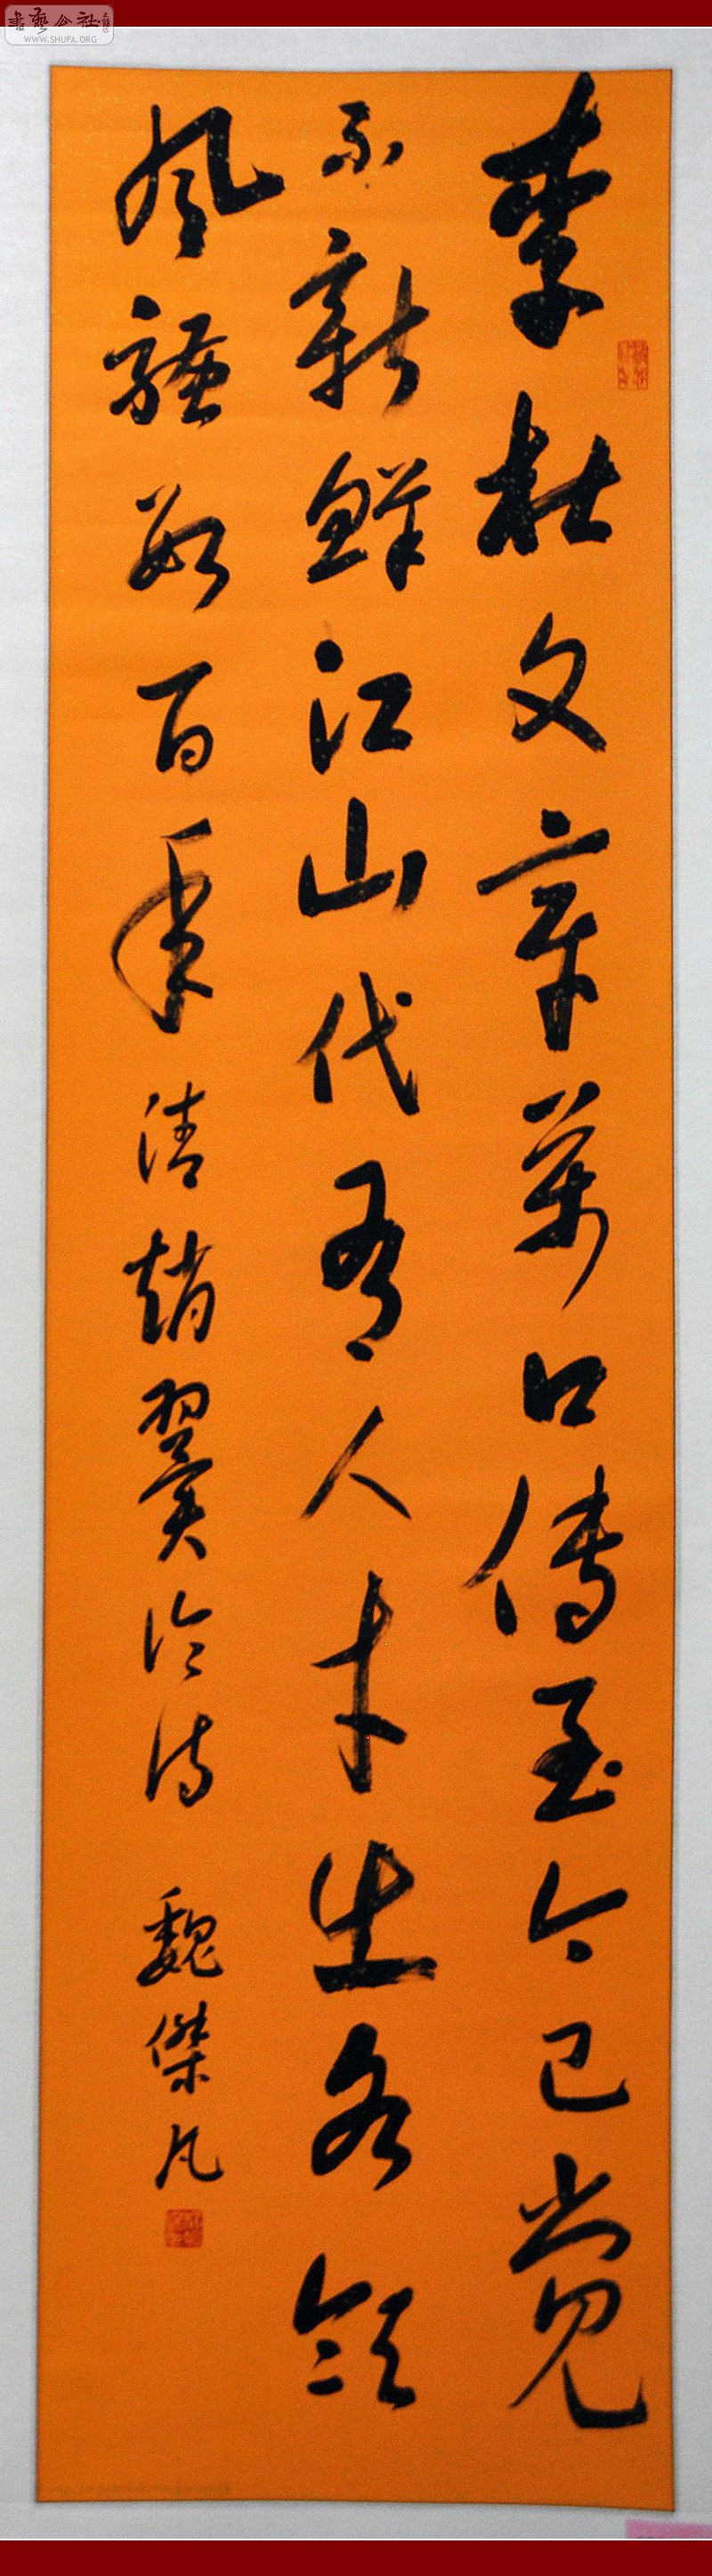 李杜文章萬口傳至今已覺
不新鮮江山代有人才生各領
風騷數百年清趙翼論詩 魏傑凡
書藝公社
WWW.SHUFA.ORG